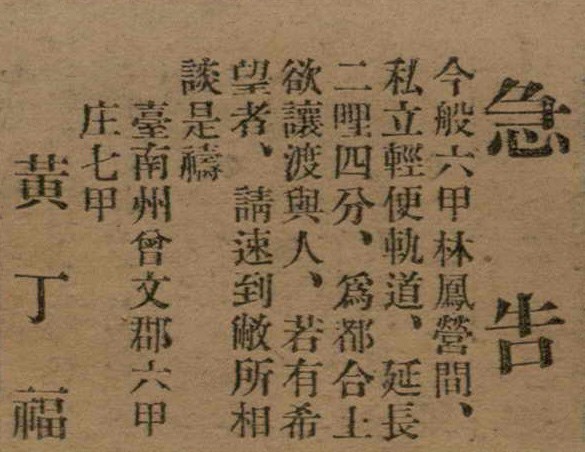 急告
今般六甲林鳳營間、
私立輕便軌道、延長
二哩四分、爲都合上
欲讓渡與人、若有希
望者、請速到敝所相
談是禱
臺南州曾文郡六甲
庄七甲
黃丁福